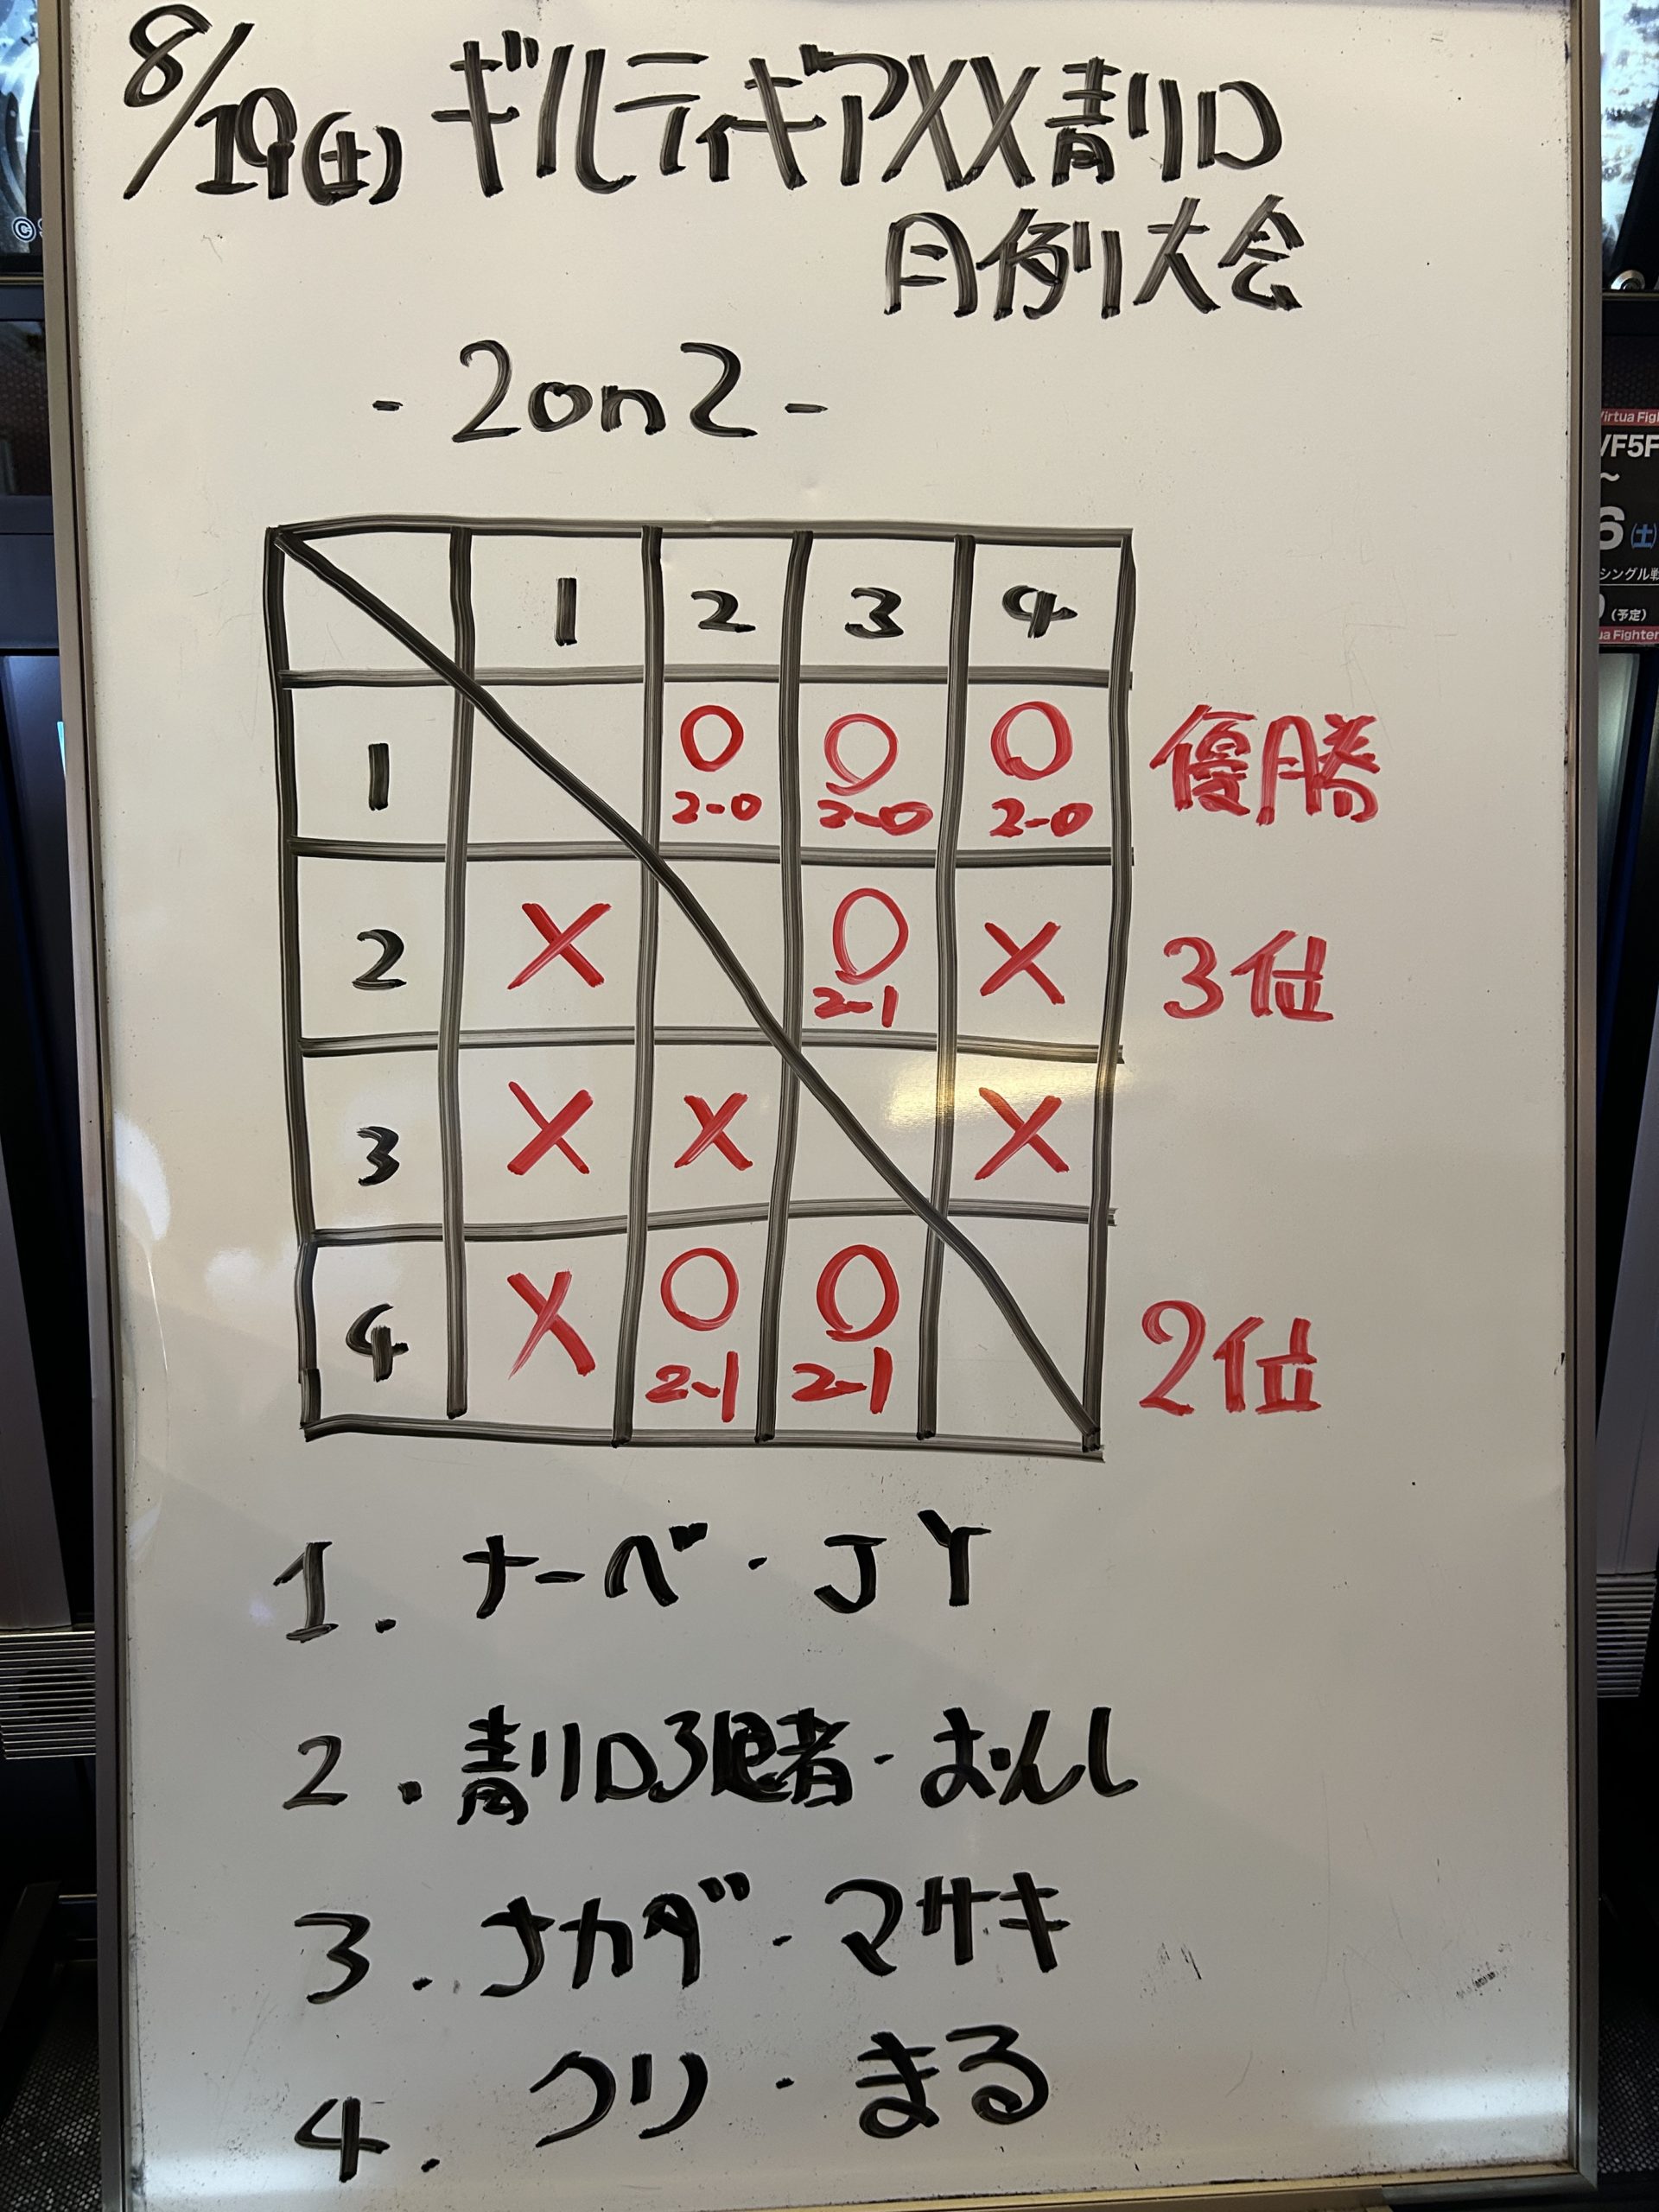 8/19(土) ギルティギアXX青リロ
月例大会
- 2on2 -
1 2 3 4
1 ○ 2-0 ○ 2-0 ○ 2-0 優勝
2 × ○ 2-1 × 3位
3 × × ×
4 × ○ 2-1 ○ 2-1 2位
1. ナーベ・JY
2. 青リロ3犯者・おんし
3. ナカダ・マサキ
4. クリ・まる
©
Virtua Fig
VF5F
~
6(土)
シングル戦
(予定)
ua Fighter